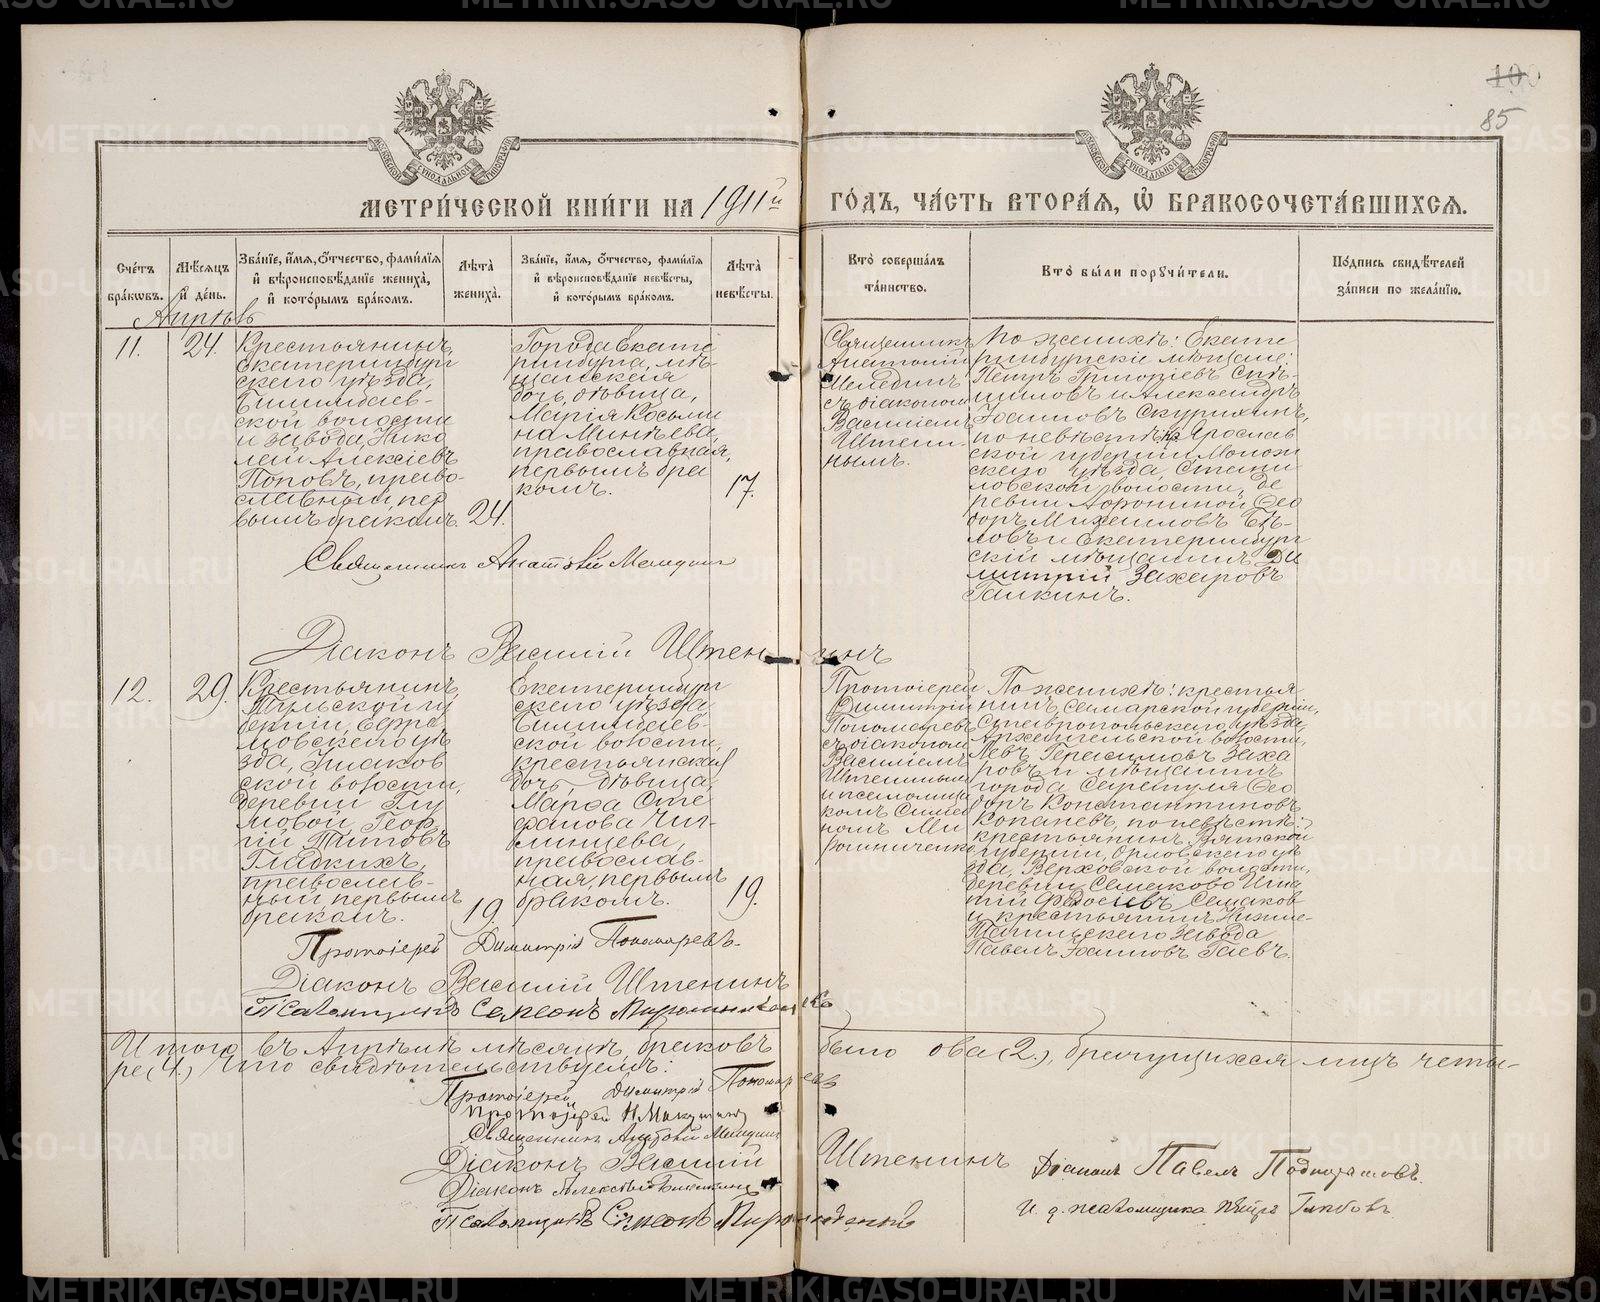 100
85
МЕТРИ́ЧЕСКОЙ КНИ́ГИ НА 1911й ГО́ДЪ, ЧА́СТЬ ВТОРА́Я, Ѿ БРАКОСОЧЕТА́ВШИХСЯ.
Сче́тъ бра́кѡвъ.
Мѣ́сяцъ и҆ де́нь.
Зва́нїе, и҆́мя, ѻ҆́тчество, фами́лїя
и҆ вѣроисповѣ́данїе жениха̀,
и҆ кото́рымъ бра́комъ.
Лѣта̀ жениха̀.
Зва́нїе, и҆́мя, ѻ҆́тчество, фами́лїя
и҆ вѣроисповѣ́данїе невѣ́сты,
и҆ кото́рымъ бра́комъ.
Лѣта̀ невѣ́сты.
Кто̀ соверша́лъ та́инство.
Кто̀ бы́ли порꙋчи́тели.
По́дпись свидѣ́телей за́писи по жела́нїю.
Апрѣль
11.
24.
Крестьянинъ
Екатеринбург
скаго уѣзда,
Билимбаев-
ской волости
и завода, Нико
лай Алексіевъ
Поповъ, право-
славный, пер
вымъ бракомъ.
24.
Города Екате
ринбурга, мѣ-
щанская
дочь, дѣвица,
Марія Косьми
на Минѣева,
православная,
первымъ бра
комъ.
17.
Священникъ
Анатолій
Мелединъ
съ діакономъ
Василіемъ
Штени-
нымъ.
По женихѣ: Екате
ринбургскіе мѣщане:
Петръ Григоріевъ
и Александръ
Іоанновъ Скурихинъ,
по невѣстѣ: Ярослав
ской губерніи Молож
скаго уѣзда, Стани
ловской волости, де
ревни Ѳео
доръ Михаиловъ Бѣ-
ловъ и Екатеринбург
скій мѣщанинъ Ди
митрій Захаровъ
Галкинъ.
Священникъ Анатолій Меледин
Діаконъ Василій Штенинъ
12.
29.
Крестьянинъ
Тульской гу
берніи, Ефре
мовскаго уѣ
зда,
ской волости,
деревни
Геор
гій Титовъ
Гладкихъ,
православ-
ный, первымъ
бракомъ.
19.
Екатеринбург
скаго уѣзда
Билимбаев-
ской волости,
крестьянская
дочь, дѣвица,
Марѳа Сте
фанова Чи-
линцева,
православ-
ная, первымъ
бракомъ.
19.
Протоіерей
Димитрій
Пономаревъ
съ діакономъ
Василіемъ
Штенинымъ
и псаломщи
комъ Симео
номъ Ми
рошниченко
По женихѣ: крестья
нинъ Самарской губерніи,
Ставропольскаго уѣзда,
Архангельской волости,
Левъ Герасимовъ Заха
ровъ и мѣщанинъ
города Сарапуля Ѳео
доръ Константиновъ
Копаневъ, по невѣстѣ:
крестьянинъ Вятской
губерніи, Орловскаго уѣ
зда, Верховской волости,
деревни Семаково Игна
тій Ѳадѣевъ Семаков
и крестьянинъ Нижне-
Тагильскаго завода
Павелъ Іоанновъ Гаевъ.
Протоіерей Димитрій Пономаревъ.
Діаконъ Василій Штенинъ
Псаломщикъ Симеонъ Мирошниченко
Итого въ Апрѣлѣ мѣсяцѣ, браковъ было два (2.), брачущихся лицъ четы-
ре (4.) Что свидѣтельствуемъ:
Протоіерей Димитрій Пономаревъ
Протоіерей Н.
Священникъ Анатолій Меледин
Діаконъ Василій Штенинъ
Діаконъ Алексѣй
Псаломщикъ Симеонъ Мирошниченко
Діаконъ Павелъ
И. д. псаломщика Петръ Глѣбовъ
METRIKI.GASO-URAL.RU